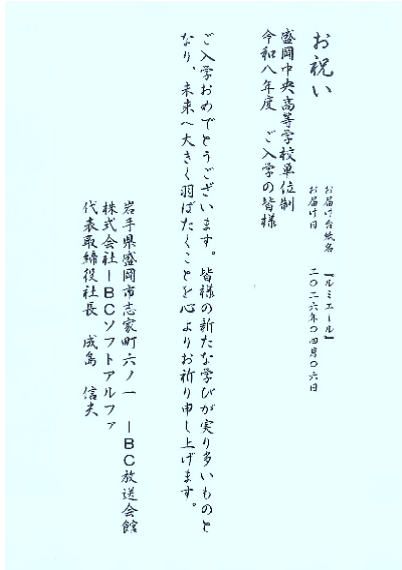 お祝い
お届け台紙名　『ルミエール』
お届け日　二〇二六年〇四月〇六日
盛岡中央高等学校単位制
令和八年度　ご入学の皆様
ご入学おめでとうございます。皆様の新たな学びが実り多いものと
なり、未来へ大きく羽ばたくことを心よりお祈り申し上げます。
岩手県盛岡市志家町六ノ一　ＩＢＣ放送会館
株式会社ＩＢＣソフトアルファ
代表取締役社長　成島　信夫